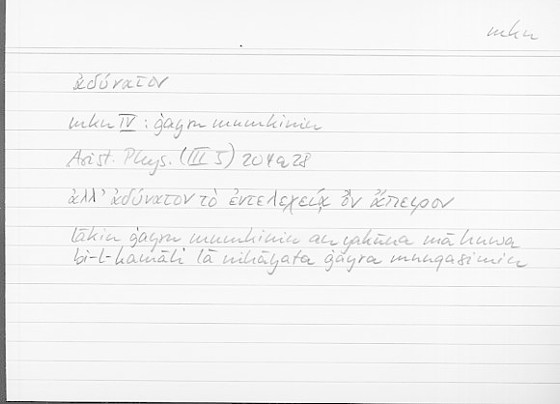 mkn
ἀδύνατον
mkn IV : ġayru mumkinin
Arist. Phys. (III 5) 204a28
ἀλλ' ἀδύνατον τὸ ἐντελεχείᾳ ὂν ἄπειρον
lākin ġayru mumkinin an yakūna mā huwa
bi-l-kamāli lā nihāyata ġayra munqasimin